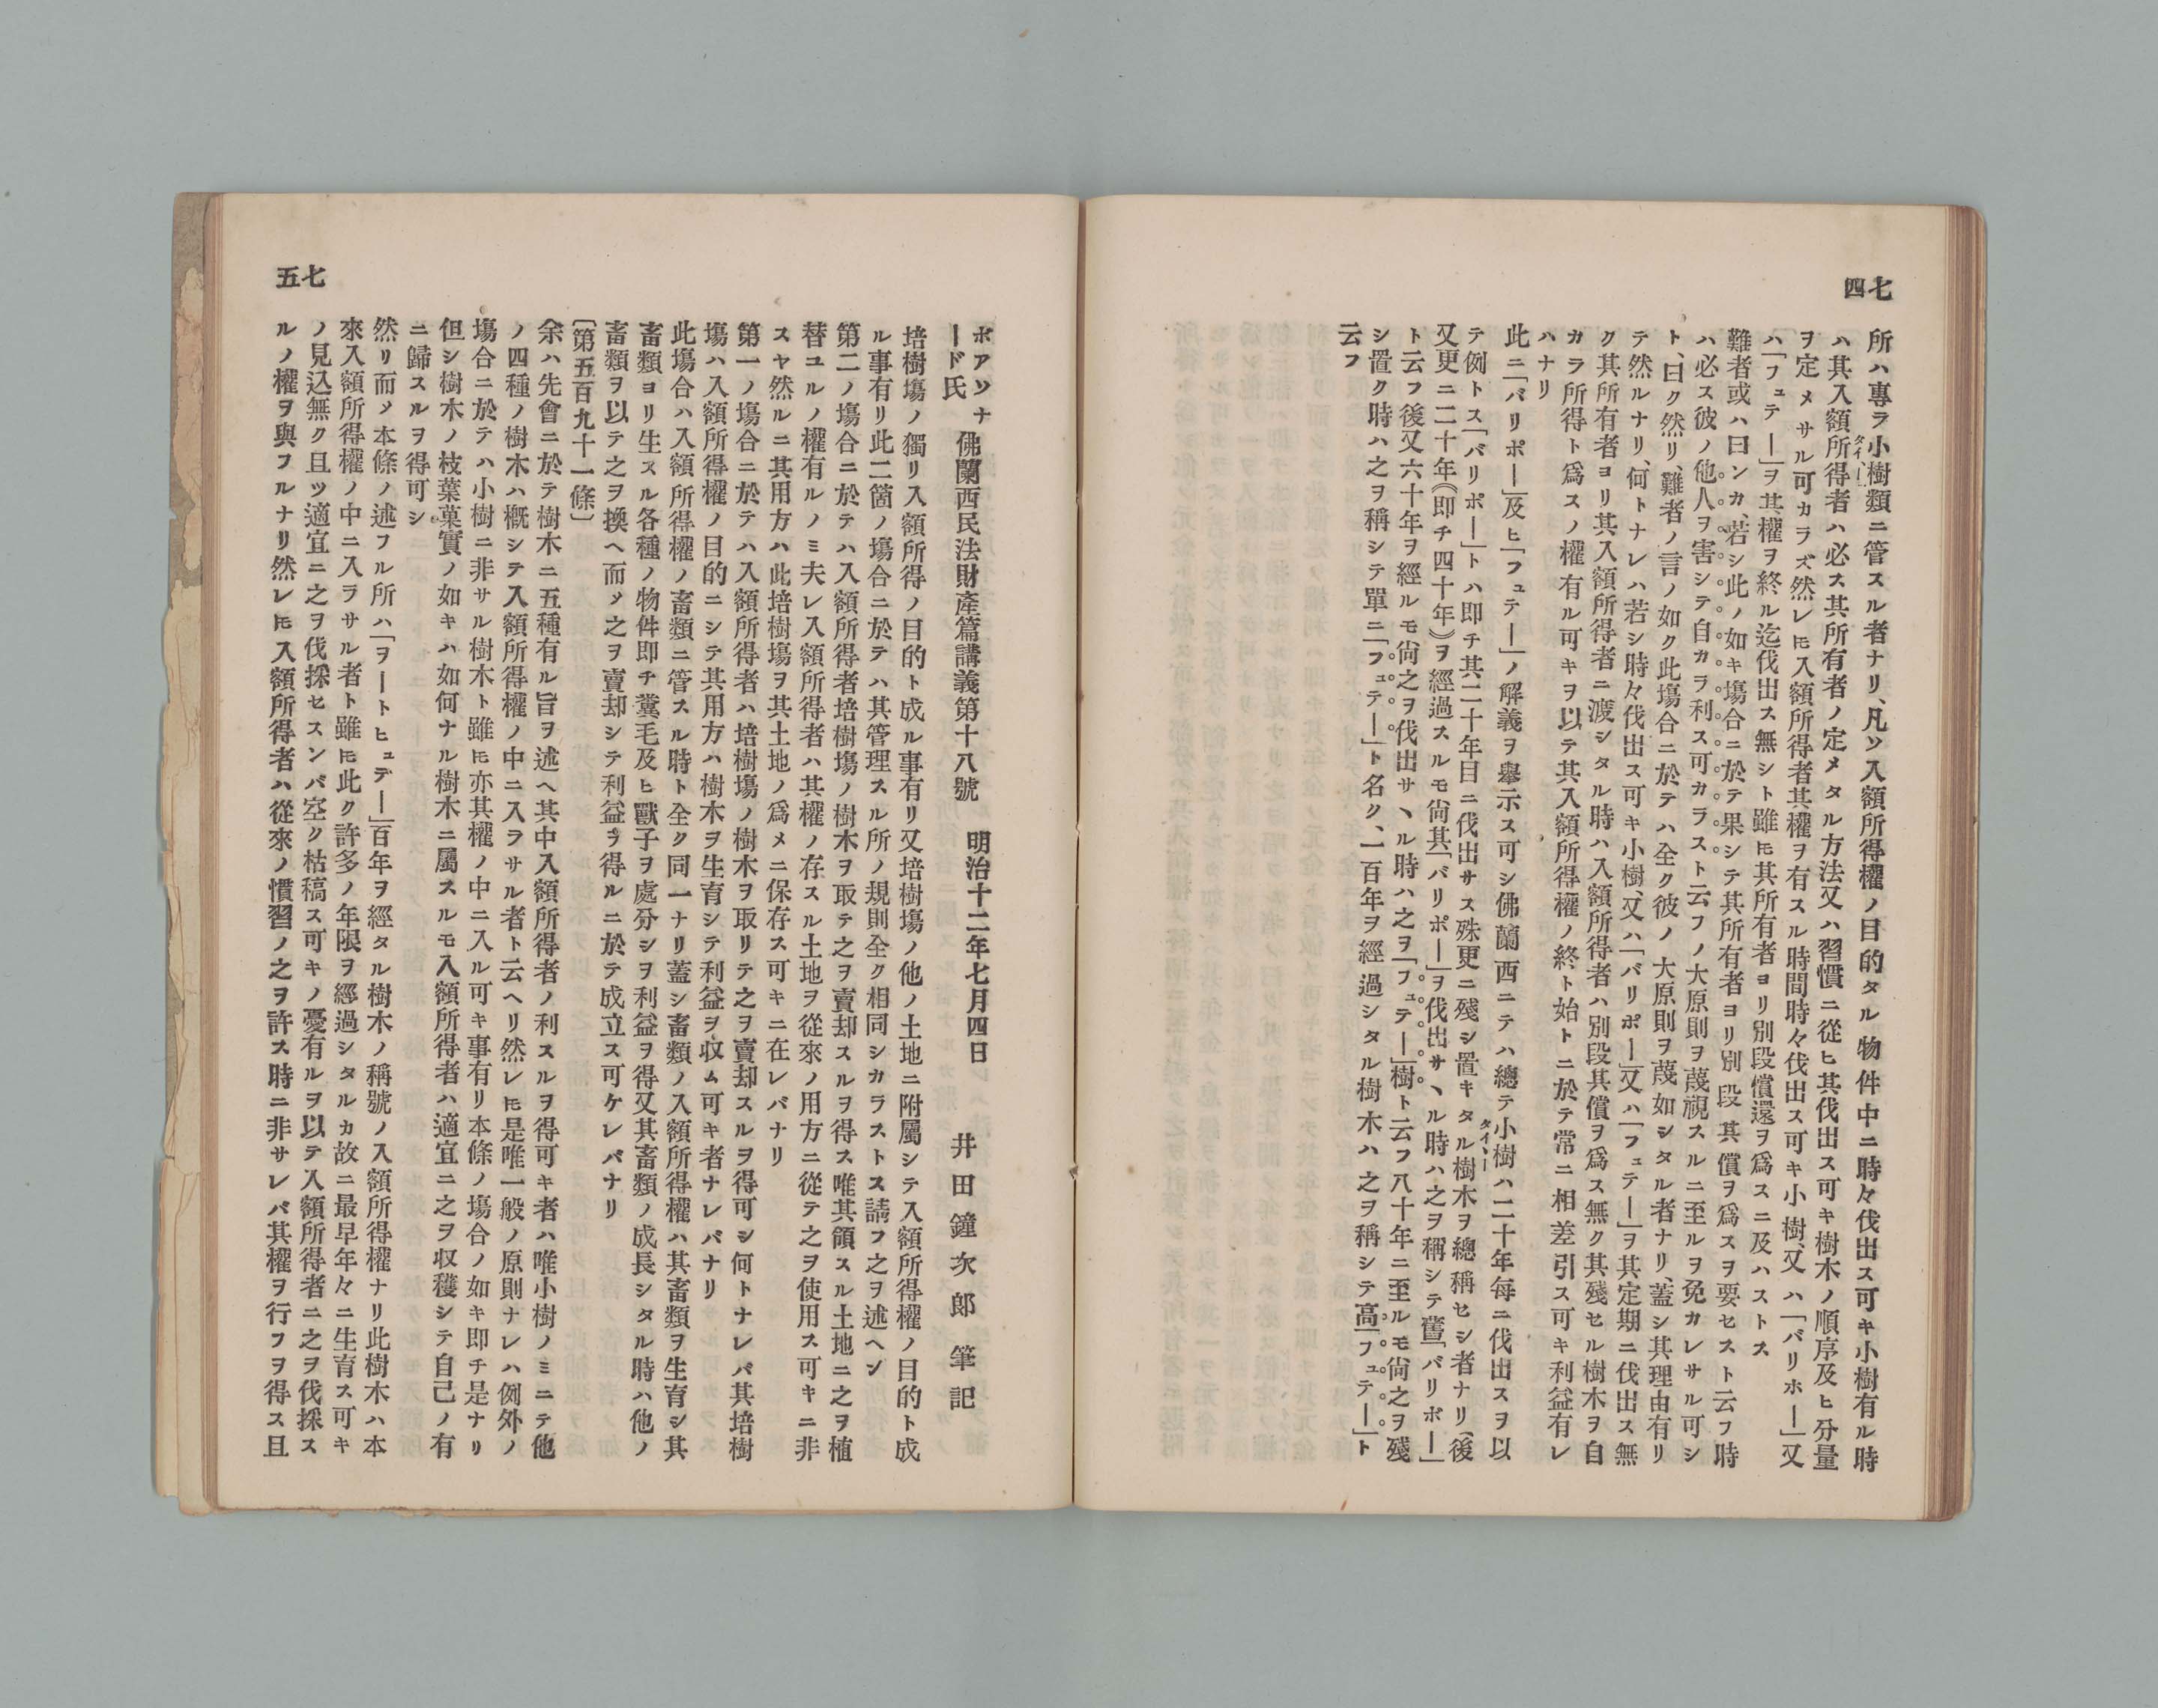 七四
所ハ專ラ小樹類ニ管スル者ナリ、凡ソ入額所得權ノ目的タル物件中ニ時々伐出ス可キ小樹有ル時
タイー
ハ其入額所得者ハ必ス其所有者ノ定メタル方法又ハ習慣ニ從ヒ其伐出ス可キ樹木ノ順序及ヒ分量
ヲ定メサル可カラズ然レ𪜈入額所得者其權ヲ有スル時間時々伐出ス可キ小樹、又ハ「バリホー」又
ハ「フュテー」ヲ其權ヲ終ル迄伐出ス無シト雖𪜈其所有者ヨリ別段償還ヲ爲スニ及ハストス
難者或ハ曰ンカ、若シ此ノ如キ塲合ニ於テ果シテ其所有者ヨリ別段其償ヲ爲スヲ要セスト云フ時
ハ必ス彼ノ他人ヲ害シテ自カラ利ス可カラスト云フノ大原則ヲ蔑視スルニ至ルヲ免カレサル可シ
ト、曰ク然リ、難者ノ言ノ如ク此塲合ニ於テハ全ク彼ノ大原則ヲ蔑如シタル者ナリ、蓋シ其理由有リ
テ然ルナリ、何トナレハ若シ時々伐出ス可キ小樹、又ハ「バリポー」又ハ「フュテー」ヲ其定期ニ伐出ス無
ク其所有者ヨリ其入額所得者ニ渡シタル時ハ入額所得者ハ別段其償ヲ爲ス無ク其殘セル樹木ヲ自
カラ所得ト爲スノ權有ル可キヲ以テ其入額所得權ノ終ト始トニ於テ常ニ相差引ス可キ利益有レ
ハナリ
此ニ「バリポー」及ヒ「フュテー」ノ解義ヲ擧示ス可シ佛蘭西ニテハ總テ小樹ハ二十年每ニ伐出スヲ以
タイー
テ例トス「バリポー」トハ即チ其二十年目ニ伐出サス殊更ニ殘シ置キタル樹木ヲ總稱セシ者ナリ（後
又更ニ二十年（即チ四十年）ヲ經過スルモ尙其「バリポー」ヲ伐出サヽル時ハ之ヲ稱シテ舊「バリポー」
ト云フ後又六十年ヲ經ルモ尙之ヲ伐出サヽル時ハ之ヲ「フュテー」樹ト云フ八十年ニ至ルモ尙之ヲ殘
シ置ク時ハ之ヲ稱シテ單ニ「フュテー」ト名ク、一百年ヲ經過シタル樹木ハ之ヲ稱シテ高「フュテー」ト
云フ
七五
ボアソナード氏 佛蘭西民法財產篇講義第十八號 明治十二年七月四日 井田鐘次郎筆記
培樹塲ノ獨リ入額所得ノ目的ト成ル事有リ又培樹塲ノ他ノ土地ニ附屬シテ入額所得權ノ目的ト成
ル事有リ此二箇ノ塲合ニ於テハ其管理スル所ノ規則全ク相同シカラストス請フ之ヲ述ヘン
第二ノ塲合ニ於テハ入額所得者培樹塲ノ樹木ヲ取テ之ヲ賣却スルヲ得ス唯其領スル土地ニ之ヲ植
替ユルノ權有ルノミ夫レ入額所得者ハ其權ノ存スル土地ヲ從來ノ用方ニ從テ之ヲ使用ス可キニ非
スヤ然ルニ其用方ハ此培樹塲ヲ其土地ノ爲メニ保存ス可キニ在レバナリ
第一ノ塲合ニ於テハ入額所得者ハ培樹塲ノ樹木ヲ取リテ之ヲ賣却スルヲ得可シ何トナレバ其培樹
塲ハ入額所得權ノ目的ニシテ其用方ハ樹木ヲ生育シテ利益ヲ収ム可キ者ナレバナリ
此塲合ハ入額所得權ノ畜類ニ管スル時ト全ク同一ナリ蓋シ畜類ノ入額所得權ハ其畜類ヲ生育シ其
畜類ヨリ生スル各種ノ物件即チ糞毛及ヒ獸子ヲ處分シヲ利益ヲ得又其畜類ノ成長シタル時ハ他ノ
畜類ヲ以テ之ヲ換ヘ而〆之ヲ賣却シテ利益ヲ得ルニ於テ成立ス可ケレバナリ
〔第五百九十一條〕
余ハ先會ニ於テ樹木ニ五種有ル旨ヲ述ヘ其中入額所得者ノ利スルヲ得可キ者ハ唯小樹ノミニテ他
ノ四種ノ樹木ハ槪シテ入額所得權ノ中ニ入ラサル者ト云ヘリ然レ𪜈是唯一般ノ原則ナレハ例外ノ
塲合ニ於テハ小樹ニ非サル樹木ト雖𪜈亦其權ノ中ニ入ル可キ事有リ本條ノ塲合ノ如キ即チ是ナリ
但シ樹木ノ枝葉菓實ノ如キハ如何ナル樹木ニ屬スルモ入額所得者ハ適宜ニ之ヲ収穫シテ自己ノ有
ニ歸スルヲ得可シ
然リ而〆本條ノ述フル所ハ「ヲートヒュデー」百年ヲ經タル樹木ノ稱號ノ入額所得權ナリ此樹木ハ本
來入額所得權ノ中ニ入ラサル者ト雖𪜈此ク許多ノ年限ヲ經過シタルカ故ニ最早年々ニ生育ス可キ
ノ見込無ク且ツ適宜ニ之ヲ伐採セスンバ空ク枯稿ス可キノ憂有ルヲ以テ入額所得者ニ之ヲ伐採ス
ルノ權ヲ與フルナリ然レ𪜈入額所得者ハ從來ノ慣習ノ之ヲ許ス時ニ非サレバ其權ヲ行フヲ得ス且